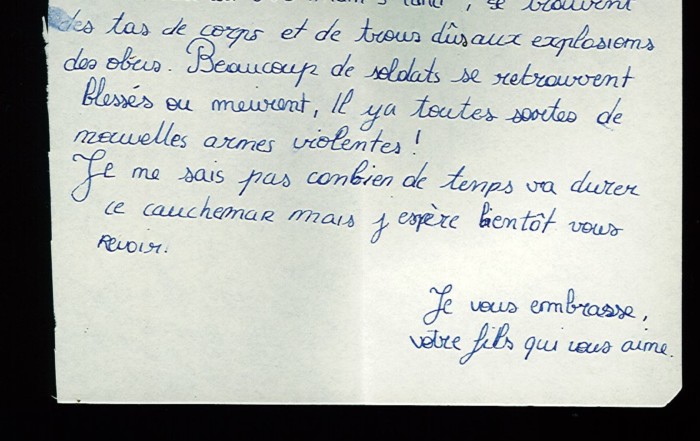 , se trouvent
des tas de corps et de trous dûs aux explosions
des obus. Beaucoup de soldats se retrouvent
blessés ou meurent, Il ya toutes sortes de
nouvelles armes violentes !
Je ne sais pas conbien de temps va durer
ce cauchemar mais j espère bientôt vous
revoir.
Je vous embrasse,
votre fils qui vous aime.